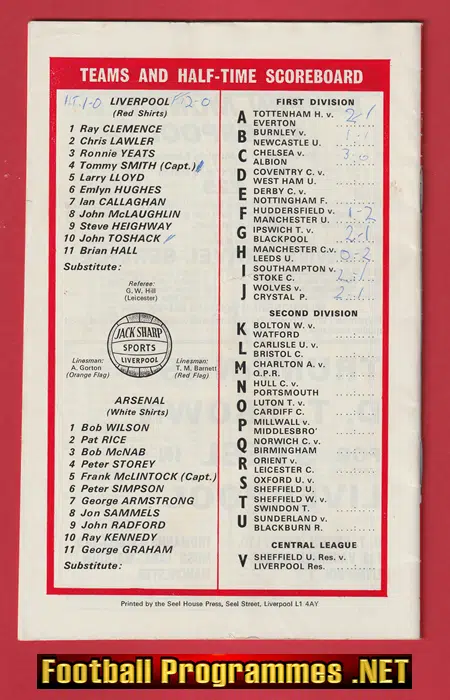 TEAMS AND HALF-TIME SCOREBOARD
H.T. 1-0 LIVERPOOL FT 2-0
(Red Shirts)
1 Ray CLEMENCE
2 Chris LAWLER
3 Ronnie YEATS
4 Tommy SMITH (Capt.)
5 Larry LLOYD
6 Emlyn HUGHES
7 Ian CALLAGHAN
8 John McLAUGHLIN
9 Steve HEIGHWAY
10 John TOSHACK
11 Brian HALL
Substitute:
Referee:
G. W. Hill
(Leicester)
JACK SHARP
SPORTS
LIVERPOOL
Linesman:
A. Gorton
(Orange Flag)
Linesman:
T. M. Barnett
(Red Flag)
ARSENAL
(White Shirts)
1 Bob WILSON
2 Pat RICE
3 Bob McNAB
4 Peter STOREY
5 Frank McLINTOCK (Capt.)
6 Peter SIMPSON
7 George ARMSTRONG
8 Jon SAMMELS
9 John RADFORD
10 Ray KENNEDY
11 George GRAHAM
Substitute:
FIRST DIVISION
A TOTTENHAM H. v.
EVERTON 2-1
B BURNLEY v.
NEWCASTLE U. 1-1
C CHELSEA v.
ALBION 3-0
D COVENTRY C. v.
WEST HAM U.
E DERBY C. v.
NOTTINGHAM F.
F HUDDERSFIELD v.
MANCHESTER U. 1-2
G IPSWICH T. v.
BLACKPOOL 2-1
H MANCHESTER C. v.
LEEDS U. 0-2
I SOUTHAMPTON v.
STOKE C. 2-1
J WOLVES v.
CRYSTAL P. 2-1
SECOND DIVISION
K BOLTON W. v.
WATFORD
L CARLISLE U. v.
BRISTOL C.
M CHARLTON A. v.
Q.P.R.
N HULL C. v.
PORTSMOUTH
O LUTON T. v.
CARDIFF C.
P MILLWALL v.
MIDDLESBRO'
Q NORWICH C. v.
BIRMINGHAM
R ORIENT v.
LEICESTER C.
S OXFORD U. v.
SHEFFIELD U.
T SHEFFIELD W. v.
SWINDON T.
U SUNDERLAND v.
BLACKBURN R.
CENTRAL LEAGUE
V SHEFFIELD U. Res. v.
LIVERPOOL Res.
Printed by the Seel House Press, Seel Street, Liverpool L1 4AY
Football Programmes .NET